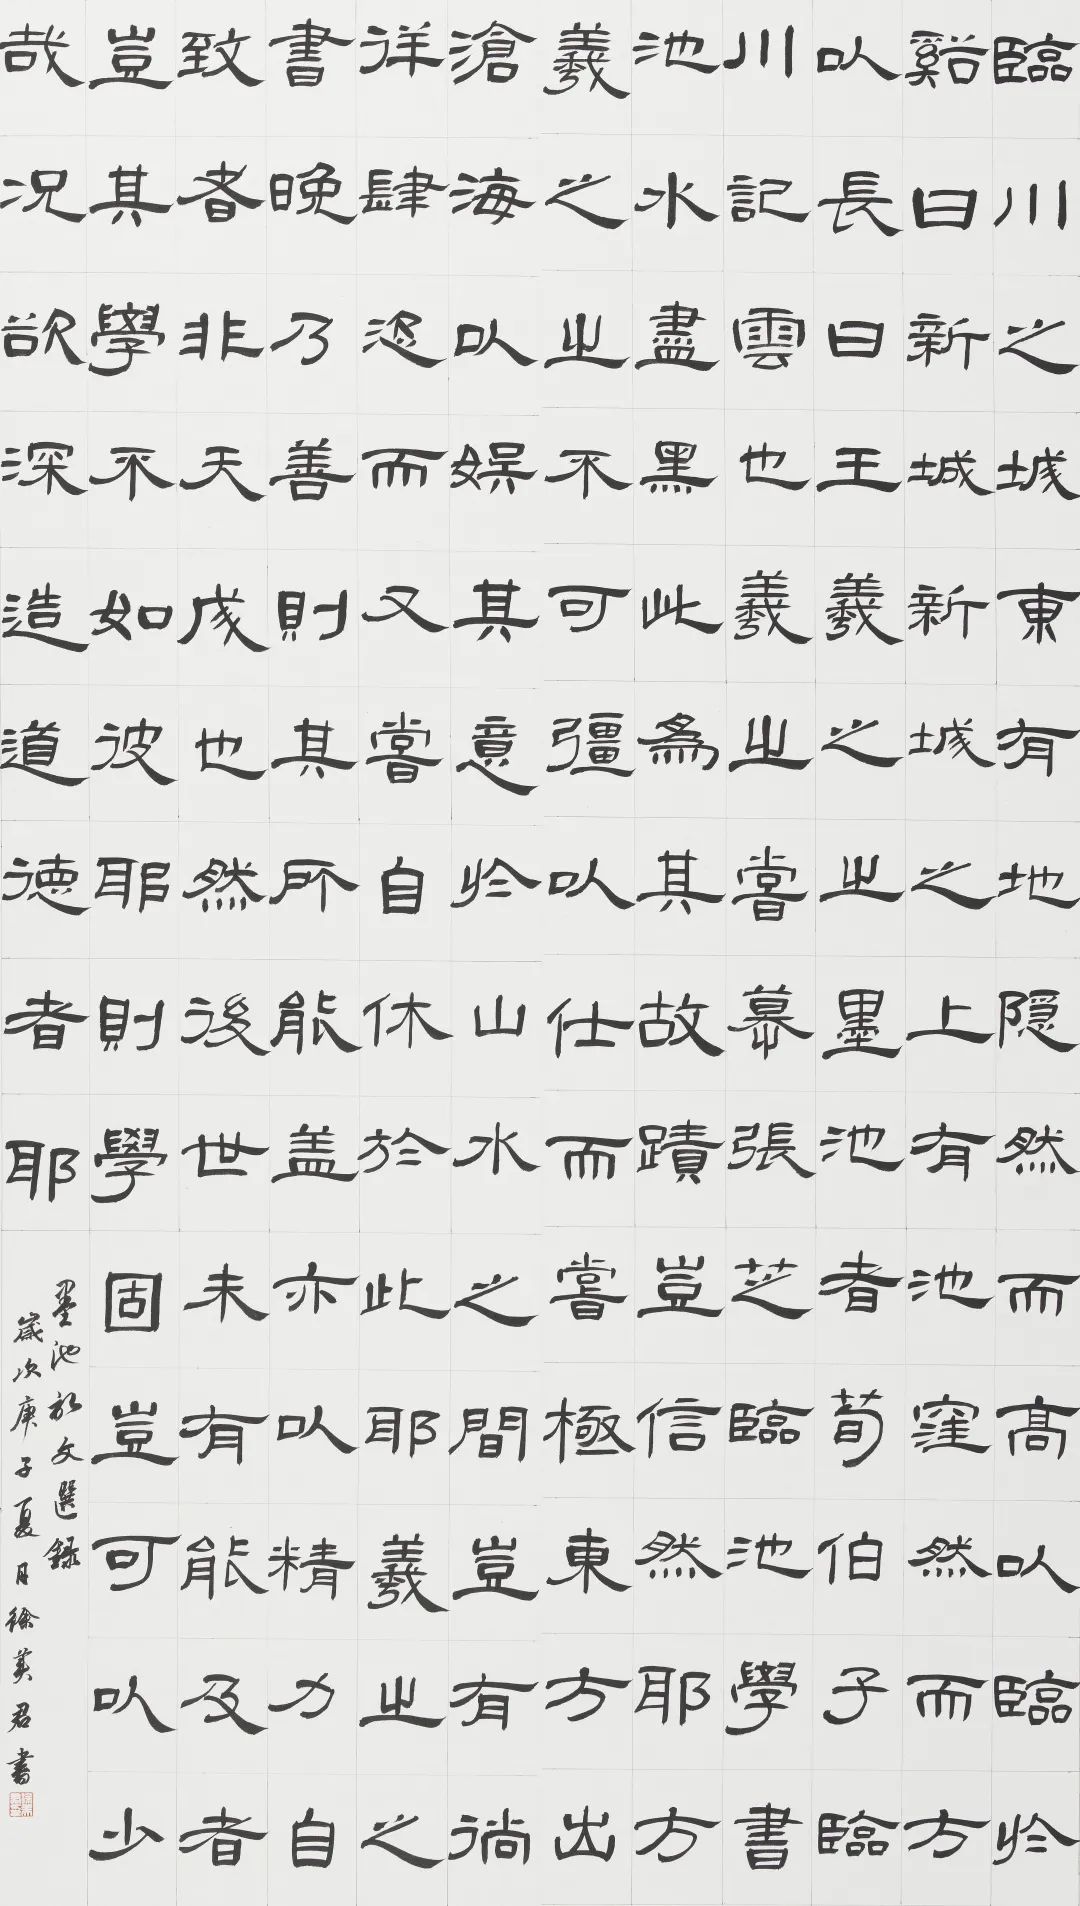 臨川之城東有地隐然而高以臨於
谿曰新城新城之上有池窪然而方
以長曰王羲之之墨池者荀伯子臨
川記雲也羲之嘗慕張芝臨池學書
池水盡黑此爲其故蹟豈信然耶方
羲之之不可彊以仕而嘗極東方出
滄海以娯其意於山水之間豈有徜
徉肆恣而又嘗自休於此耶羲之之
書晚乃善則其所能盖亦以精力自
致者非天成也然後世未有能及者
豈其學不如彼耶則學固豈可以少
哉况欲深造道德者耶
墨池文選録
歲次庚子夏月徐美君書